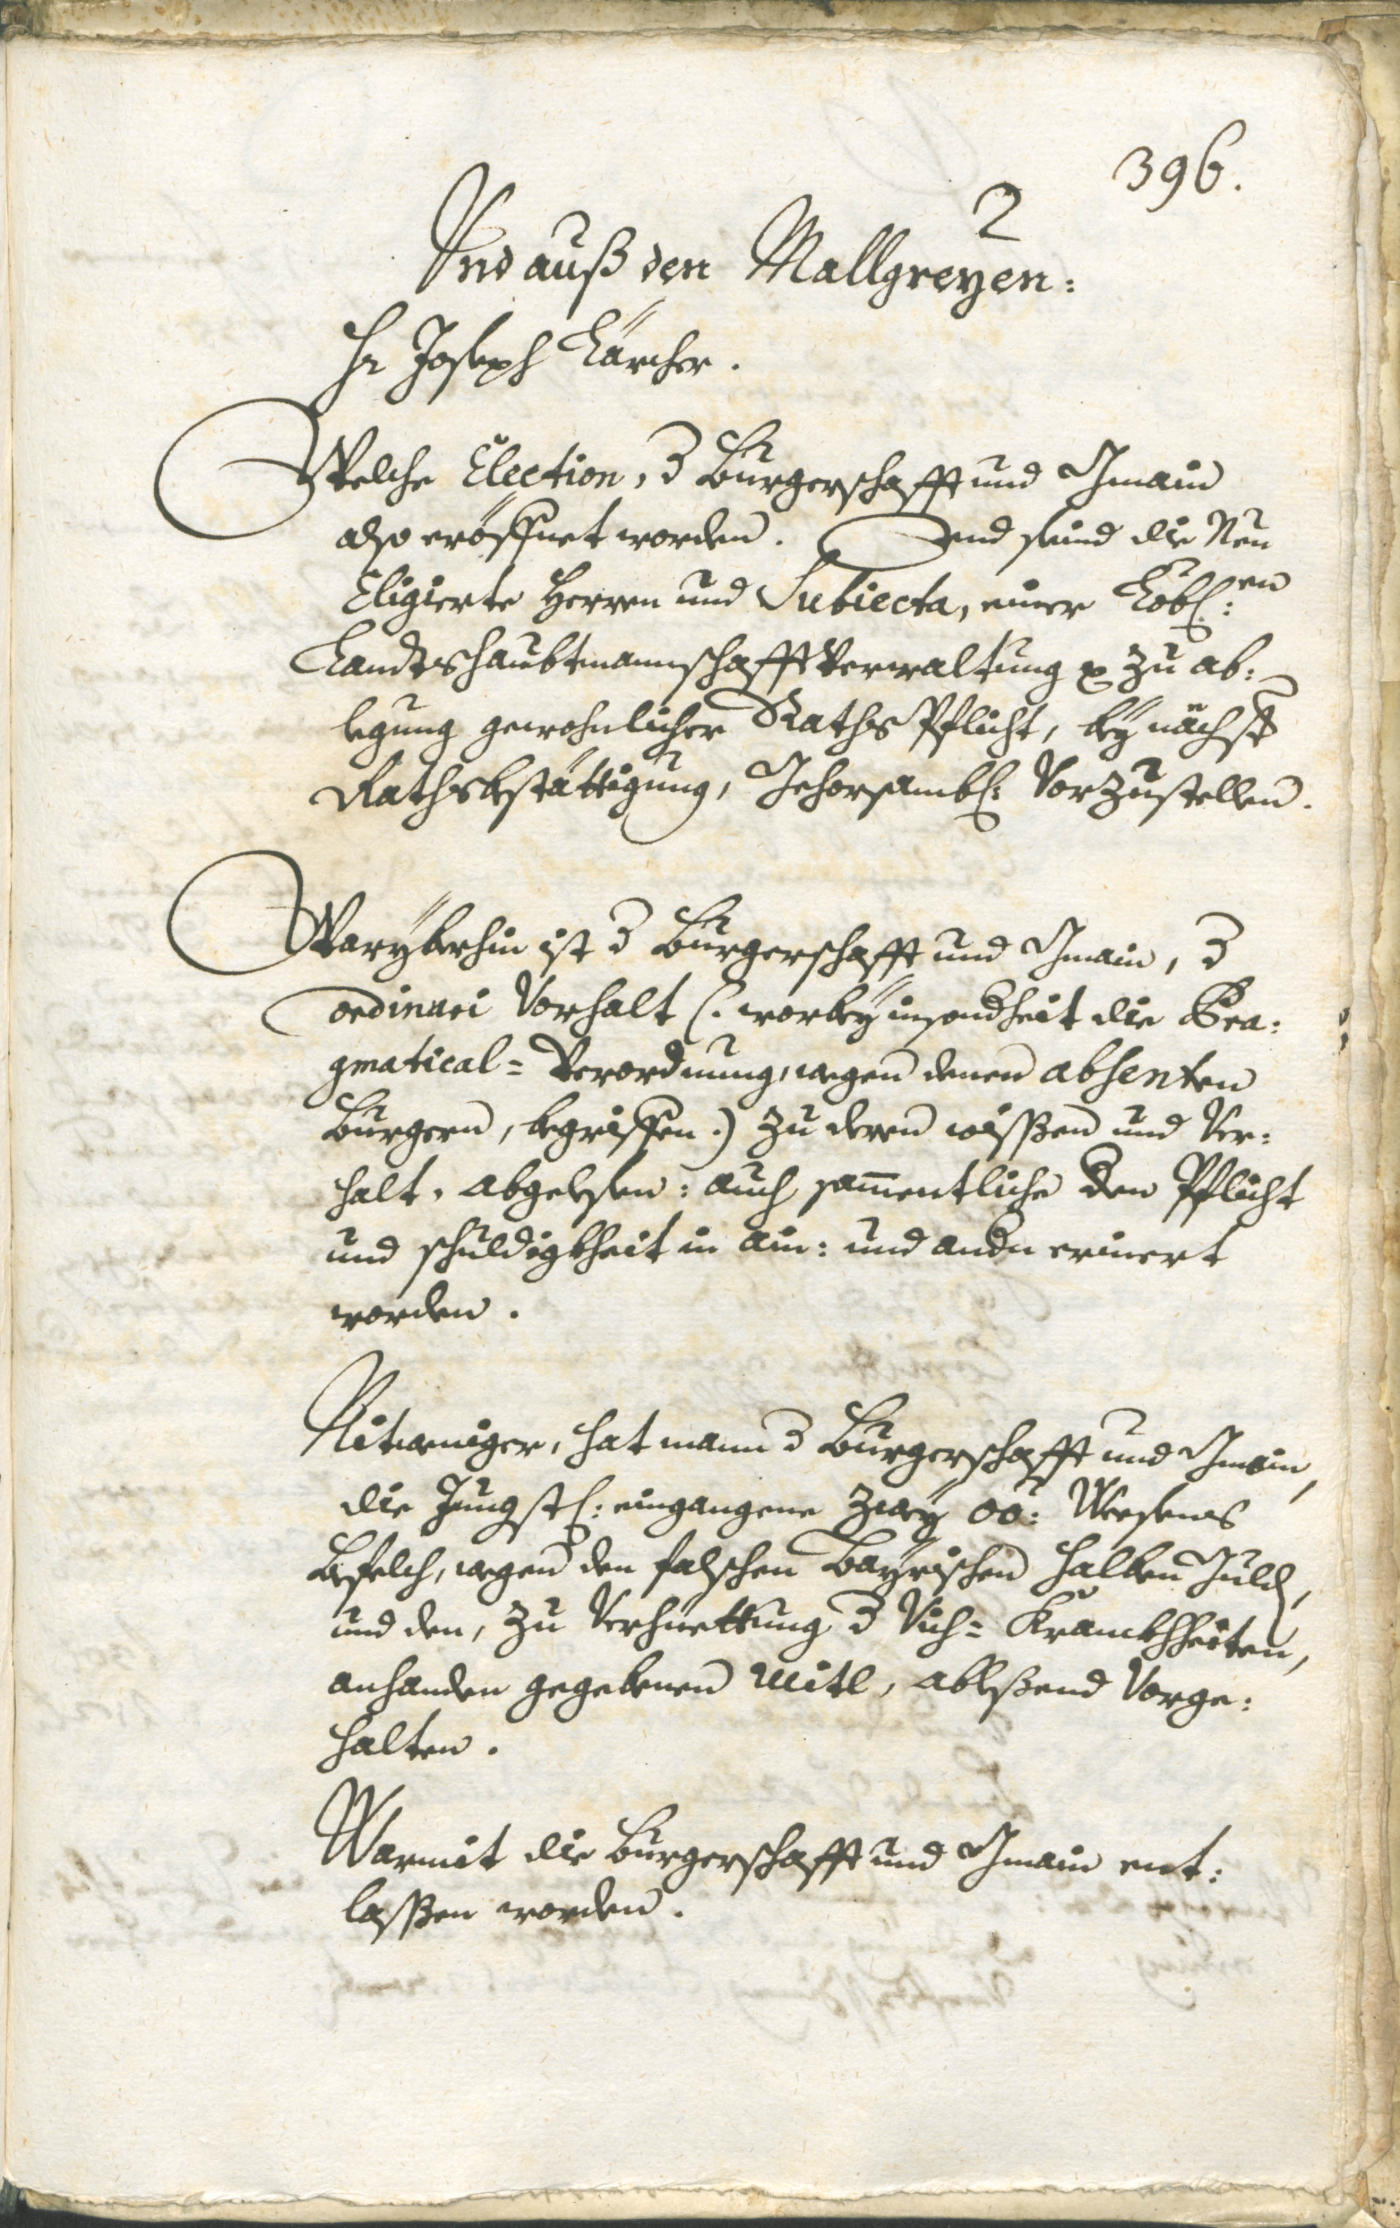 396.
2
Vnd auß den Mallgreyen:
Hr Joseph Kärcher.
Welche Election, d Burgerschafft und Gmain
also eröffnet worden. Vnd seind die Neu
Eligierte Herren und Subiecta, einer Löbl:en
Landtshaubtmannschafft Verwaltung zu ab:
legung gewohnlicher Raths Pflicht, bey nächst
Rathsbestättigung, Gehorsambl: Vorzustellen.
Warÿberhin ist d Burgerschafft und Gmain, d
ordinari Vorhalt (: worbey insondheit die Pra:
gmatical= Verordnung, wegen denen absenten
Burgern, begriffen:) zu deren wissen und Ver:
halt, abgelesen: auch samentliche den Pflicht
und schuldigkheit in ain: und andn erinert
worden.
Nitweniger, hat mann d Burgerschafft und Gmain,
die Jungstl: eingangene zwey OÖ: Weesens
Befelch, wegen den falschen Bayrischen halben Guld,
und den, zu Verhuettung d Vich= Kranckhheiten,
anhanden gegebenen Mitl, ableßend Vorge:
halten.
Warmit die Burgerschafft und Gmain ent:
lassen worden.